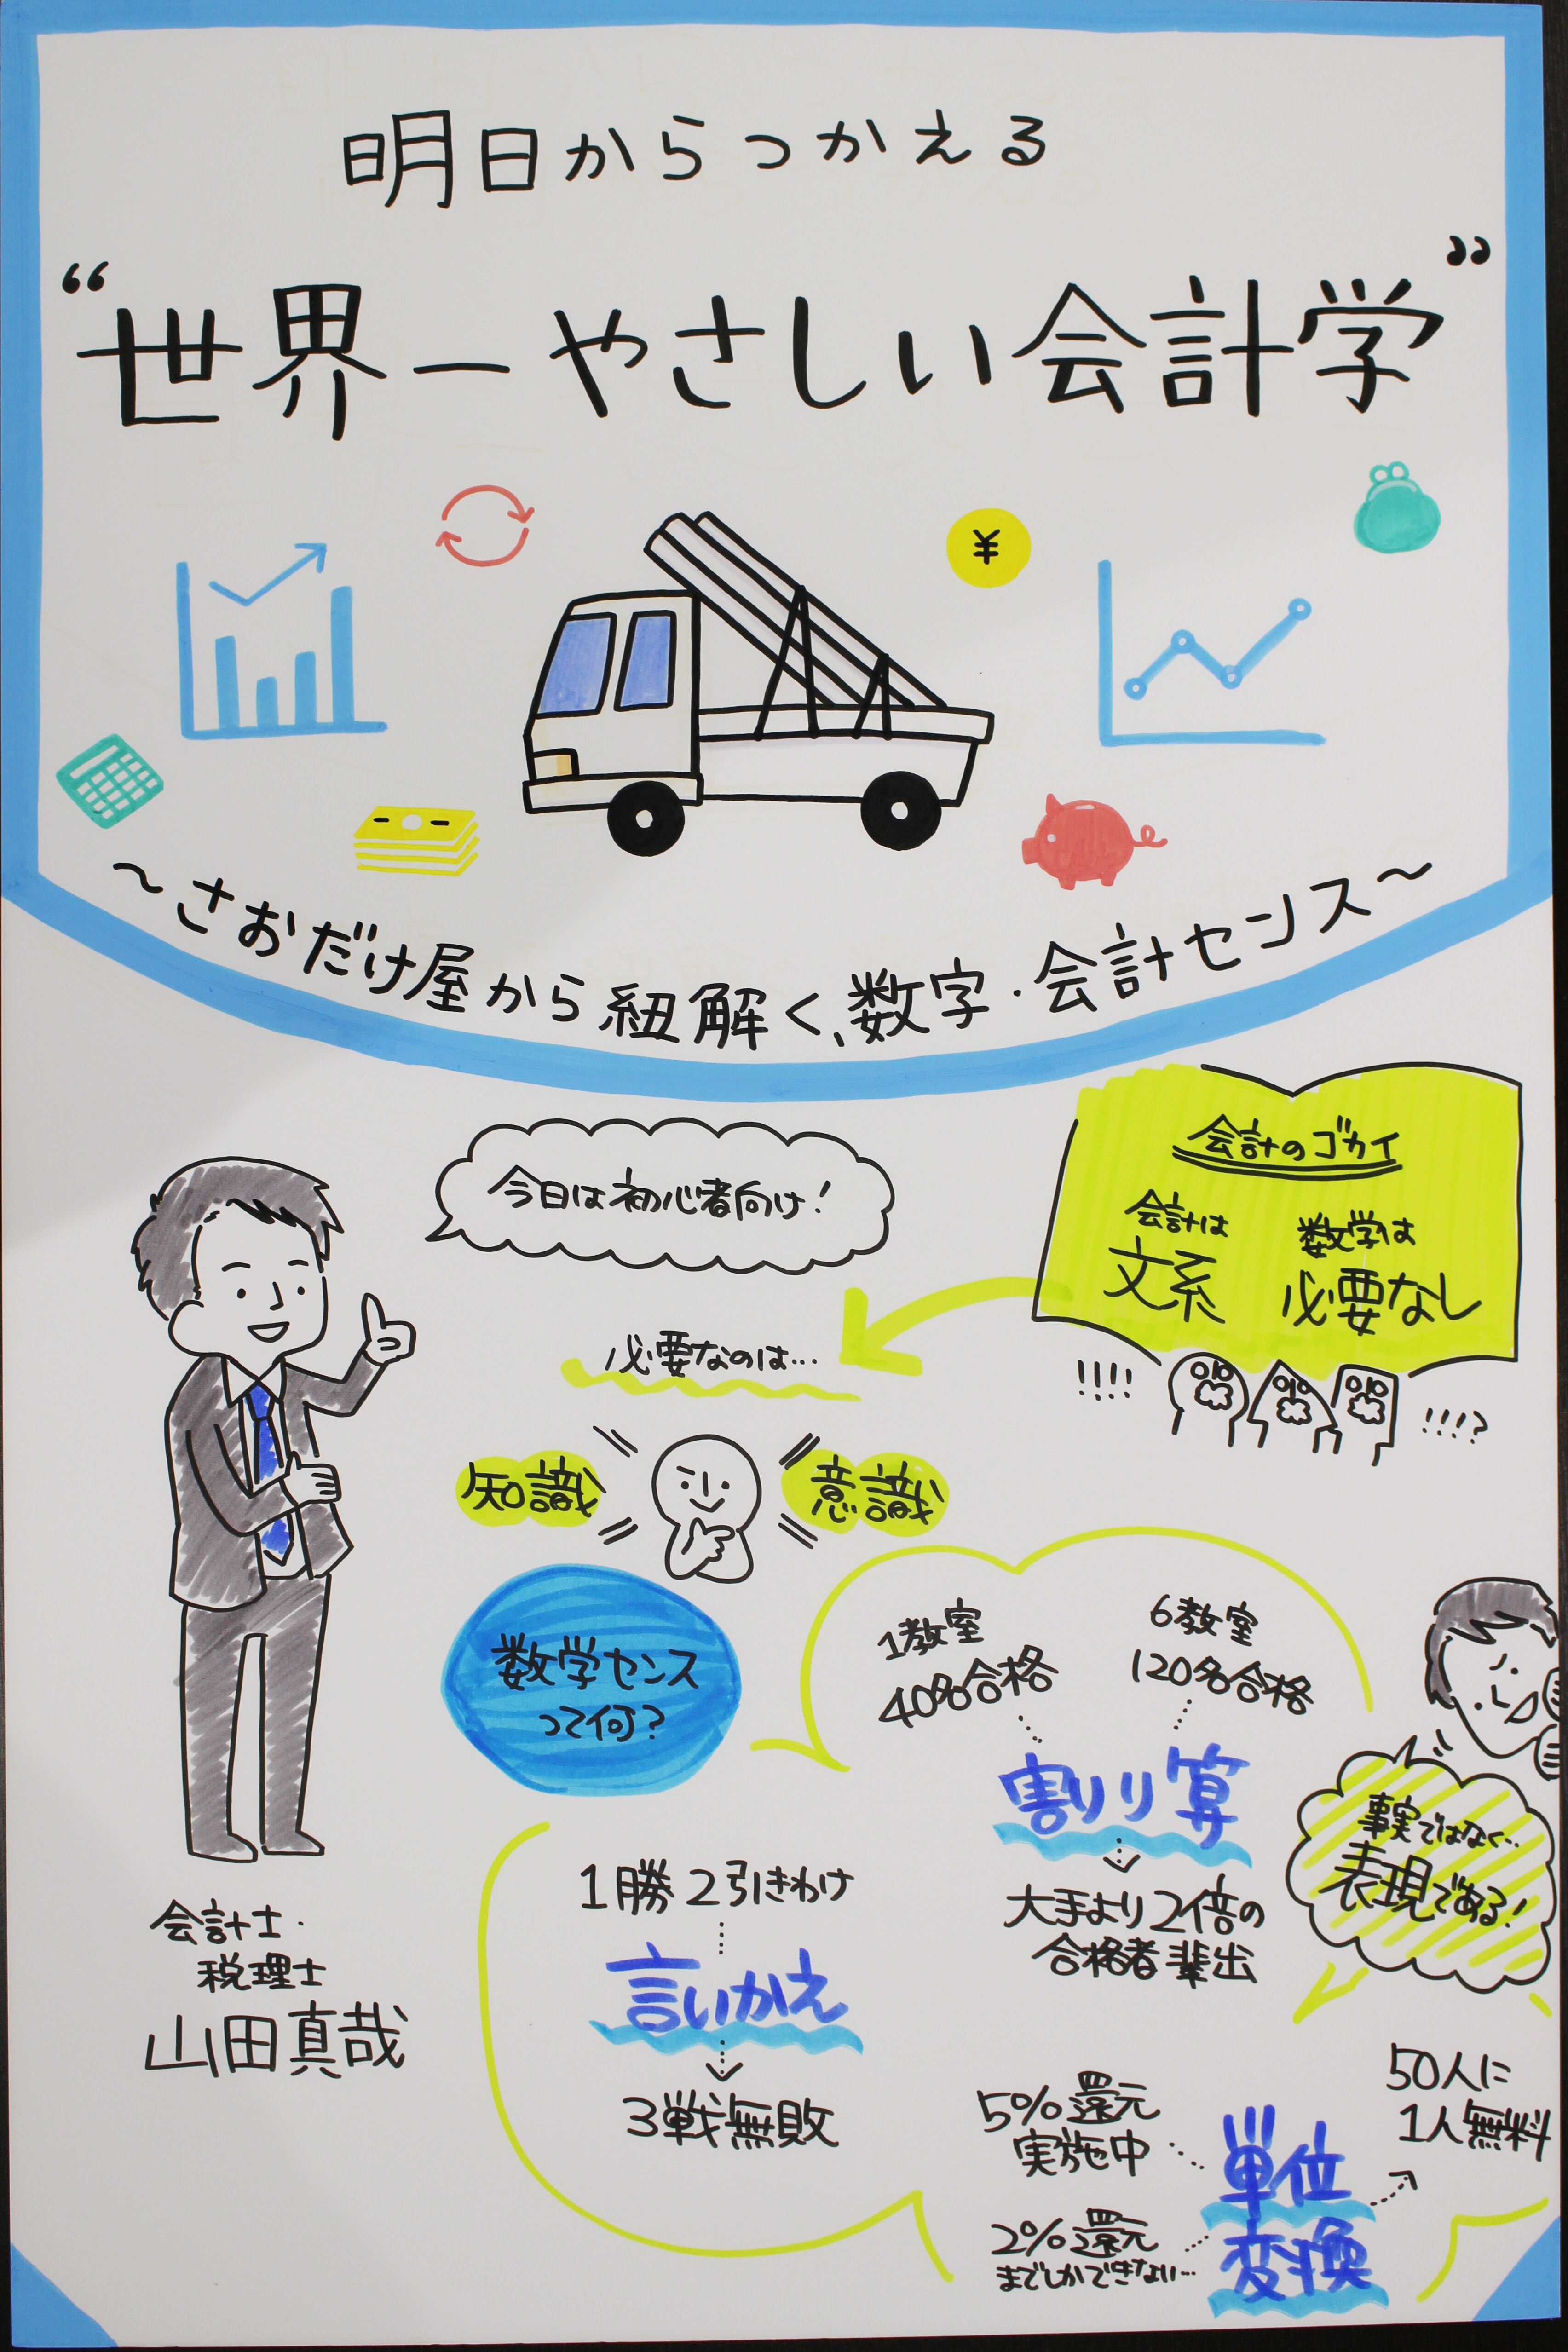 明日からつかえる
“世界一やさしい会計学”
¥
〜さおだけ屋から紐解く、数字・会計センス〜
今日は初心者向け!
会計のゴカイ
会計は
文系
数学は
必要なし
!!!!
!!!?
必要なのは…
知識
意識
数学センス
って何?
1教室
40名合格
6教室
120名合格
割り算
大手より2倍の
合格者輩出
事実ではなく…
表現である!
1勝2引きわけ
言いかえ
3戦無敗
会計士・
税理士
山田真哉
5%還元
実施中
2%還元
までしかできない…
単位
変換
50人に
1人無料